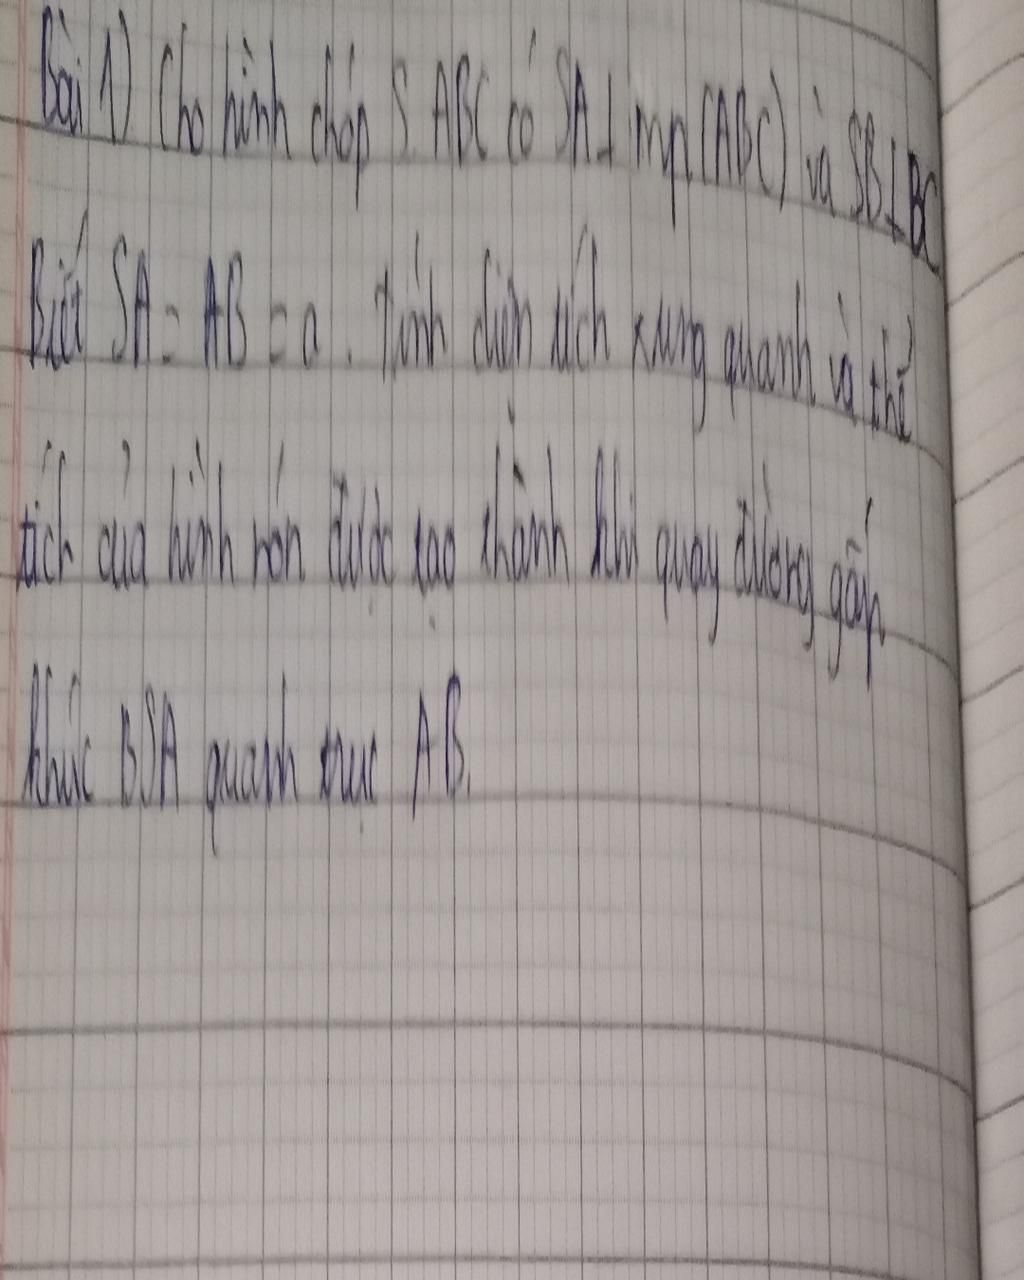 Bài 1) Cho hình chóp S.ABC có SA⊥mp(ABC) và SB⊥BC
Biết SA = AB = a. Tính diện tích xung quanh và thể
tích của hình nón được tạo thành khi quay đường gấp
khúc BSA quanh trục AB.